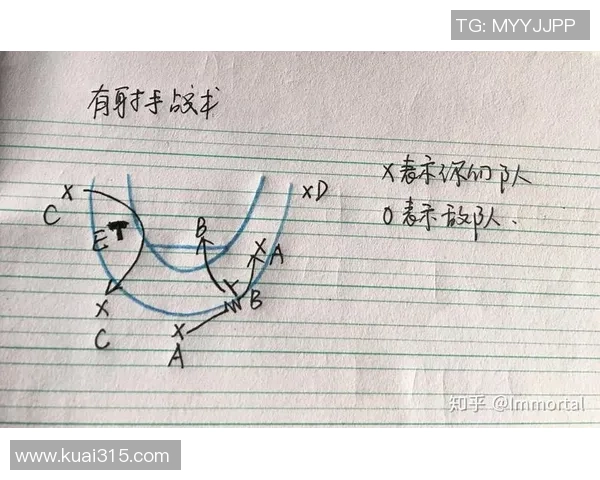 TG: MYYJJPP
有射手战术
X表示你的队
O表示敌队.
X
C
E
B
X
A
XD
X
C
B
X
A
知乎 @Immortal
www.kuai315.com